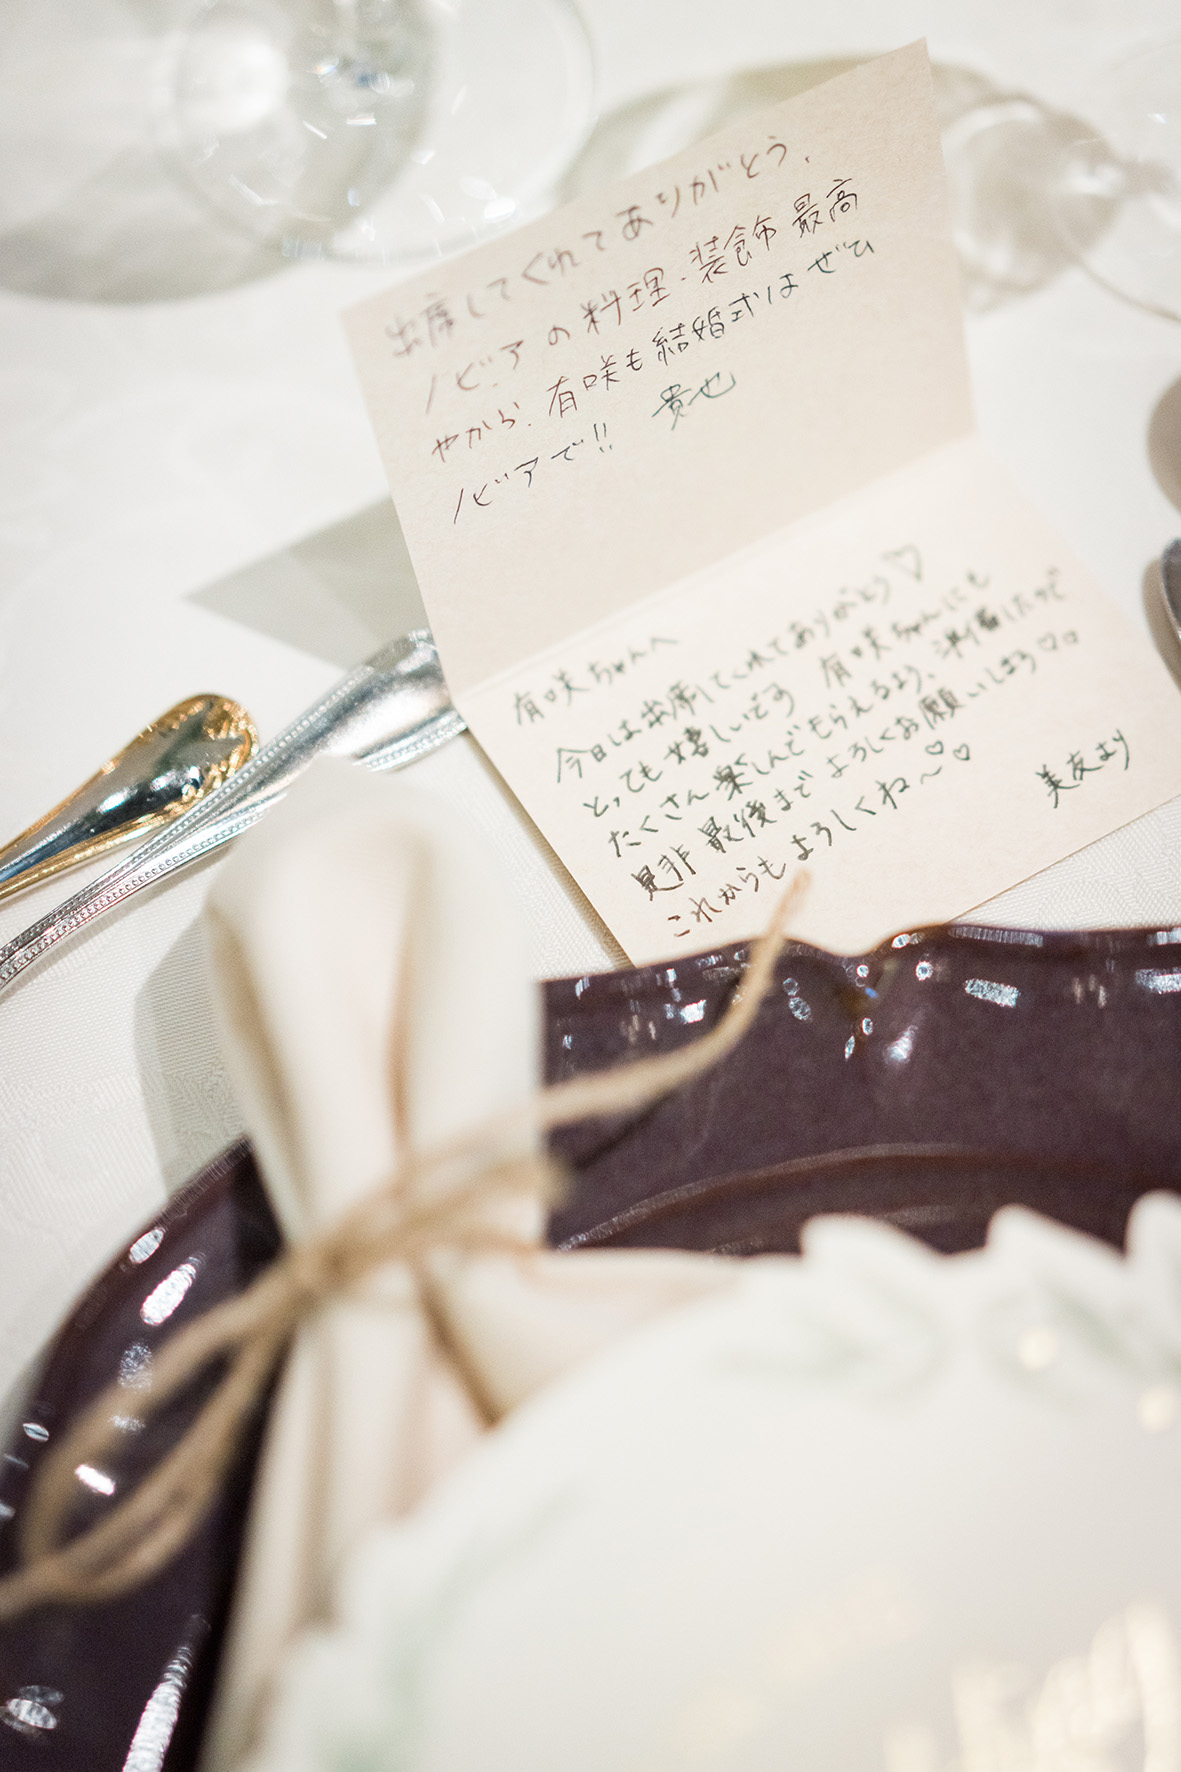 出席してくれてありがとう、
ノビアの料理・装飾最高
やから、有咲も結婚式はぜひ
ノビアで!! 貴也
有咲ちゃんへ
今日は出席してくれてありがとう♡
とっても嬉しいです 有咲ちゃんにも
たくさん楽しんでもらえるよう、準備したので
是非最後までよろしくお願いしまう♡。
これからもよろしくね〜♡♡
美友より